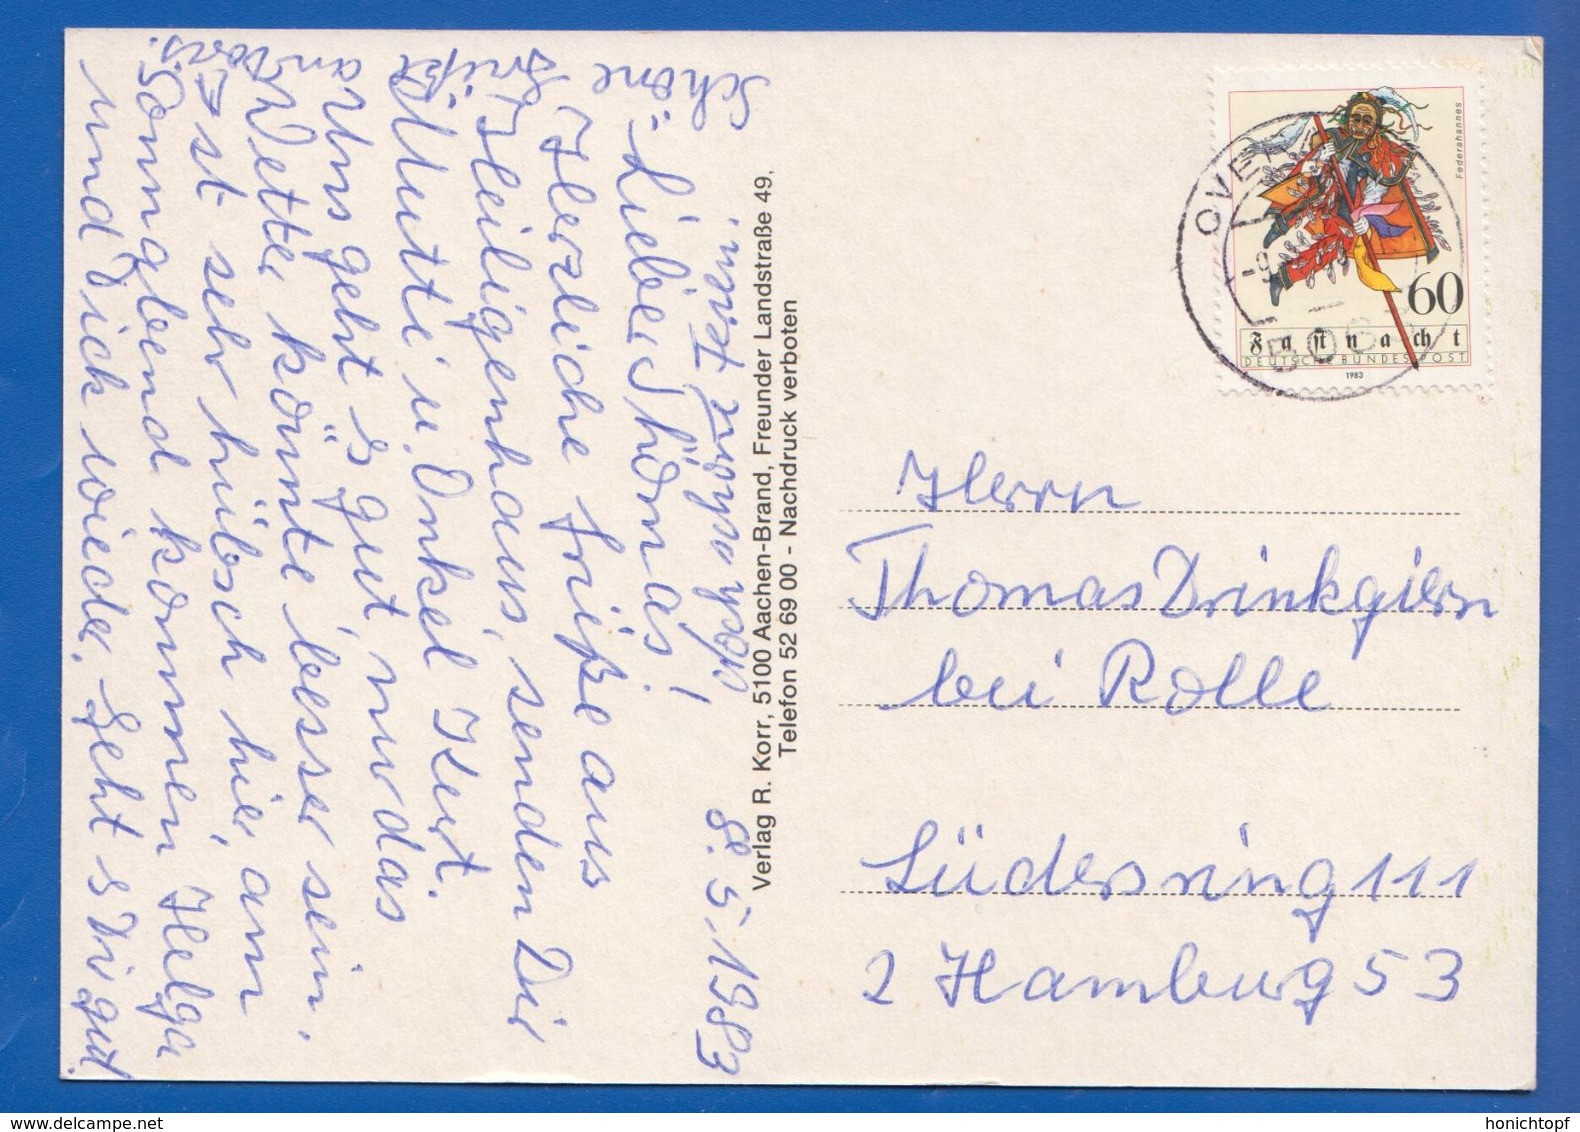 8.5.1983
Lieber Thomas!
Herzliche Grüße aus
Heiligenhaus, senden Dir
Mutti u. Onkel Kurt.
Uns geht's gut, nur das
Wetter könnte besser sein.
Ist sehr hübsch hier, am
Sonnabend kommen Helga
und Dick wieder. Geht's Dir gut.
Schöne
Grüße
an
Verlag R. Korr, 5100 Aachen-Brand, Freunder Landstraße 49,
Telefon 52 69 00 - Nachdruck verboten
Federahannes
60
Fastnacht
DEUTSCHE BUNDESPOST
1983
Herrn
Thomas Drinkgiern
bei Rolle
Lüdersring 111
2 Hamburg 53
honichtopf
delcampe.net